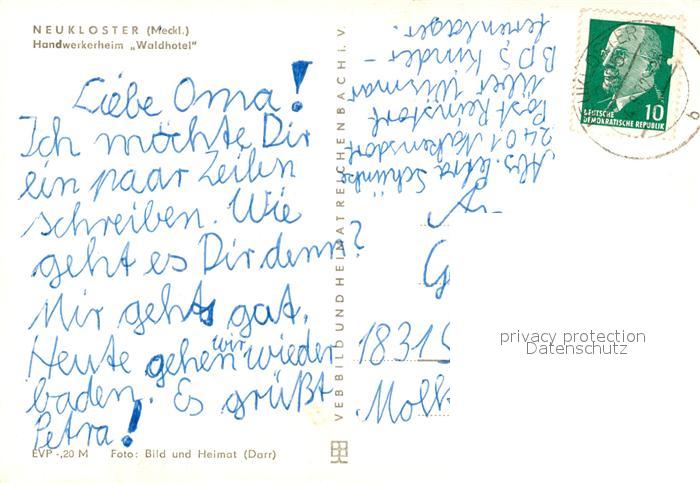 NEUKLOSTER (Meckl.)
Handwerkerheim „Waldhotel"
Liebe Oma!
Ich möchte Dir
ein paar Zeilen
schreiben. Wie
geht es Dir denn?
Mir gehts gut.
Heute gehen wir wieder
baden. Es grüßt
Petra!
EVP -,20 M Foto: Bild und Heimat (Darr)
VEB BILD UND HEIMAT REICHENBACH I. V.
Abs. Petra
2401 Nakensdorf
Post Reinstorf
über Wismar
BPS Kinder-
ferienlager.
DEUTSCHE
DEMOKRATISCHE REPUBLIK
10
1831
privacy protection
Datenschutz